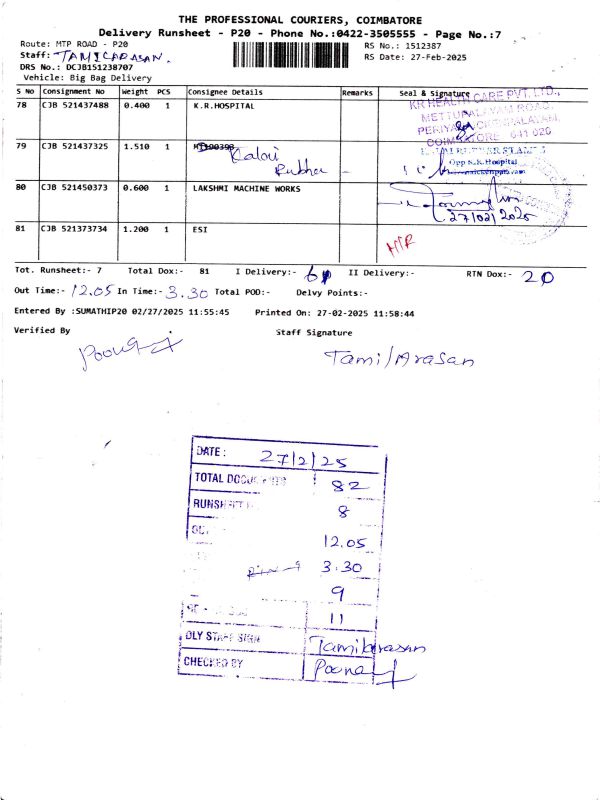 THE PROFESSIONAL COURIERS, COIMBATORE
Delivery Runsheet - P20 - Phone No.:0422-3505555 - Page No.:7
Route: MTP ROAD - P20
RS No.: 1512387
Staff: TAMILARASAN.
RS Date: 27-Feb-2025
DRS No.: DCJB151238707
Vehicle: Big Bag Delivery
S No Consignment No Weight PCS Consignee Details Remarks Seal & Signature
78 CJB 521437488 0.400 1 K.R.HOSPITAL
KR HEALTH CARE PVT. LTD.,
METTUPALAYAM ROAD,
COIMBATORE 641 020
79 CJB 521437325 1.510 1 Kalai
Rubber
RUBBER STAMP
Opp S.K. Hospital
80 CJB 521450373 0.600 1 LAKSHMI MACHINE WORKS
27/02/2025
81 CJB 521373734 1.200 1 ESI
Tot. Runsheet:- 7 Total Dox:- 81 I Delivery:- 61 II Delivery:- RTN Dox:- 20
Out Time:- 12.05 In Time:- 3.30 Total POD:- Delvy Points:-
Entered By :SUMATHIP20 02/27/2025 11:55:45 Printed On: 27-02-2025 11:58:44
Verified By Staff Signature
TamilArasan
DATE: 27/2/25
TOTAL 82
8
12.05
3.30
9
11
DLY STAFF SIGN Tamilarasan
CHECKED BY